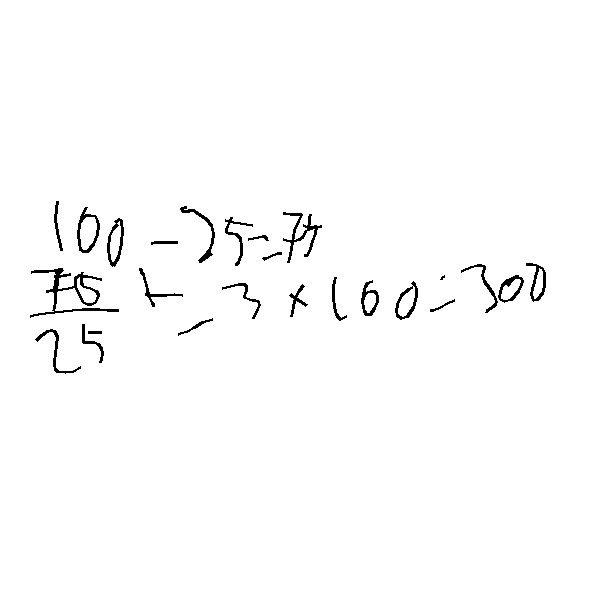 100 - 25 = 75
75/25 = 3 × 100 = 300